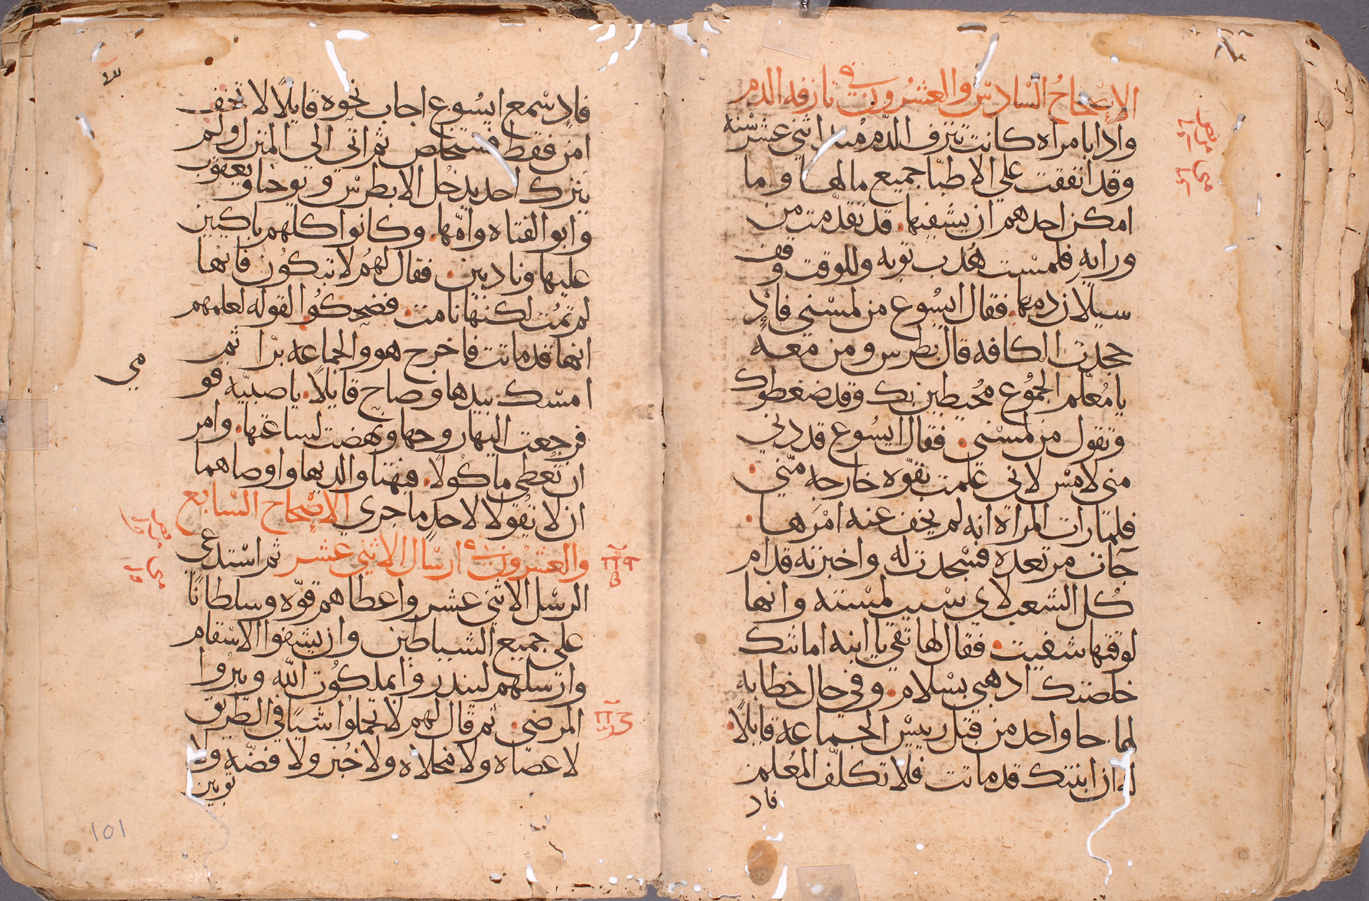 الإصحاح السادس والعشرون نازفه الدم
واذا بامراه كانت تنزف الدم منذ اثني عشر سنه
وقد انفقت على الاطبا جميع مالها وما
امكن احدهم ان يشفيها. قد تقدمت من
ورايه فلمست هدب ثوبه وللوقت وقف
سيلان دمها. فقال ايسوع من لمسني فاذ
جحدت الكافه قال بطرس ومن معه
يا معلم الجموع محيطين بك وقد ضغطوك
وتقول من لمسني. فقال ايسوع قد دني
مني لامس لاني علمت بقوه خارجه منّي.
فلما رات المراه انه لم يخف عنه امرها.
جآت مرتعده فسجدت له واخبرته قدام
كل الشعب لاي سبب لمسته وانها
لوقتها شفيت. فقال لها ثقي يا ابنه امانتك
خلصتك اذهبي بسلام. وفي حال خطابه
لها جا واحد من قبل رييس الجماعه قايلًا.
له ان ابنتك قد ماتت فلا تكلّف المُعلم
فاذ
فاذ سمع ايسوع اجاب نحوه قايلًا لا تخف
امن فقط فستخلص ثم اتى الى المنزل ولم
يترك احد يدخل الا بطرس ويوحنا ويعقوب
وابو الفتاه وامّها. وكانوا كلهم باكيين
عليها ونادبين. فقال لهم لا تبكون فانها
لم تمُت لكنها نامت. فضحكوا لقوله لعلمهم
انها قد ماتت فاخرج هو والجماعه برّا ثم
امسك بيدها وصاح قايلًا. يا صبيّه قو
مي
فرجعت اليها روحها ونهضت لساعتها. وامر
ان تُعطى ماكولًا. فبهتا والديها واوصاهما
ان لا يقولا لاحدٍ ما جرى الإصحاح السابع
والعشرون ارسال الاثني عشر ثم استدعى
الرسل الاثني عشر واعطاهم قوّه وسلطانًا
على جميع الشياطين وان يشفوا الاسقام
وارسلهم لينذروا بملكوت الله ويبروا
المرضى. ثم قال لهم لا تحملوا شيًا في الطريق
لا عصاه ولا مخلاه ولا خبز ولا فضّه ولا
ثوبين
101